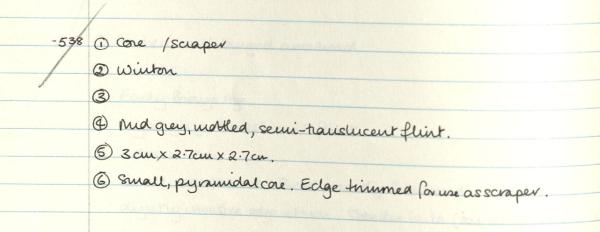 -538 ① Core / scraper
② Winton
③
④ Mid grey, mottled, semi-translucent flint.
⑤ 3cm x 2.7cm x 2.7cm.
⑥ Small, pyramidal core. Edge trimmed for use as scraper.